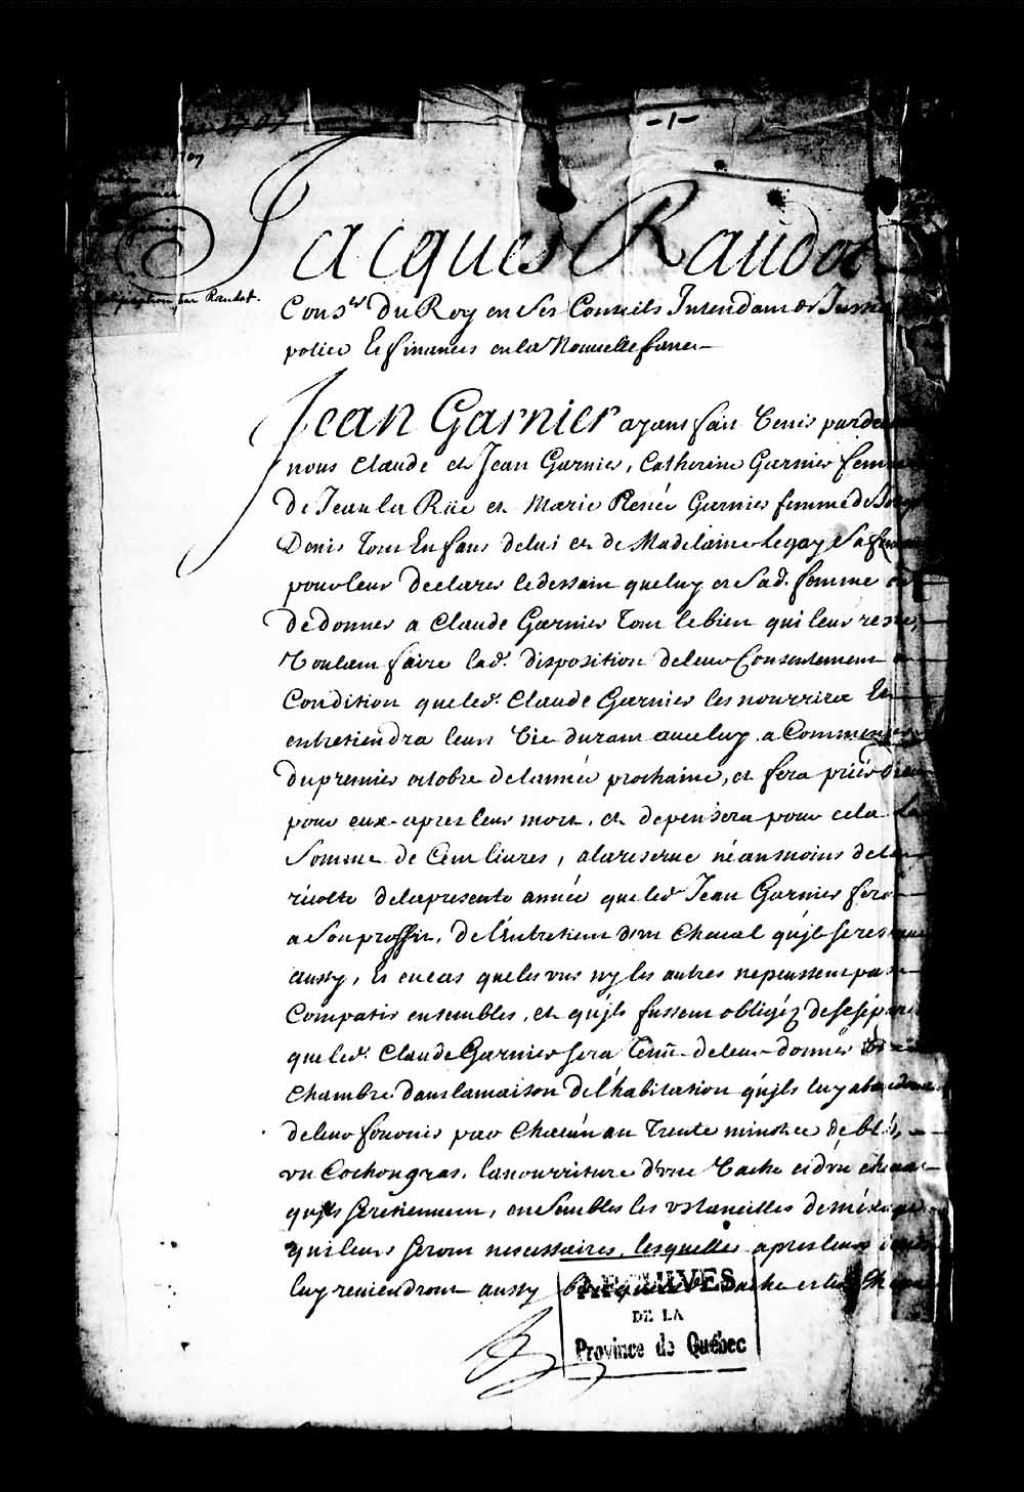 -1-
1707
Jacques Raudot
par Raudot.
Cons.er Du Roy en ses Conseils Intendant de Justice
police Et finances en la Nouuelle france
Jean Garnier ayant fait Venir par deuant
nous Claude et Jean Garnier, Catherine Garnier femme
de Jean la Rüe et Marie Renée Garnier femme de
Denis tous Enfans de lui et de Madelaine Legay Sa femme
pour leur Declarer le dessain que luy et Sad. femme ont
de donner a Claude Garnier tout le bien qui leur reste,
Voulant faire lad. disposition de leur Consentement a
Condition que led. Claude Garnier les nourrira Et
entretiendra leurs Vie durant auec luy a Commencer
du premier octobre de lannée prochaine, et fera prier dieu
pour eux apres leur mort, et depensera pour cela La
Somme de Cent liures, a la reserue néanmoins de la
récolte de la presente année que led Jean Garnier fera
a Son proffit, de l'Entretien d'vn Cheual qu'jl se reserue
aussy, Et en cas que les vns ny les autres ne peussent pas
Compatir ensembles, et qu'jls fussent obligéz de se séparer
que led. Claude Garnier sera tenu de leur donner
Chambre dans la maison de l'habitation qu'jls luy abandonnent
de leur fournir par Chacun an Trente minots de blé,
vn Cochon gras, la nourriture d'vne Vache et d'vn cheual
qu'jls se retiennent, ensembles les vstancilles de ménage
qui leurs seront necessaires, lesquelles apres leurs
luy reuiendront aussy Vache et le Cheual
ARCHIVES
DE LA
Province de Québec